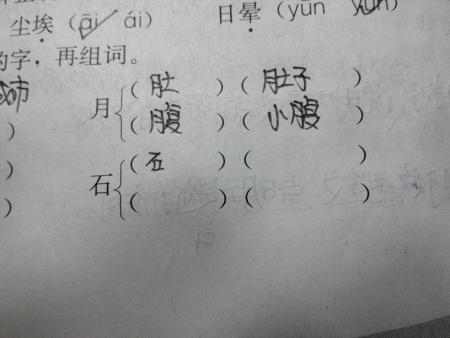 尘埃（āi ái） 日晕（yūn yùn）
的字，再组词。
月 （肚）（肚子）
（腹）（小腹）
石 （石）（ ）
（ ）（ ）